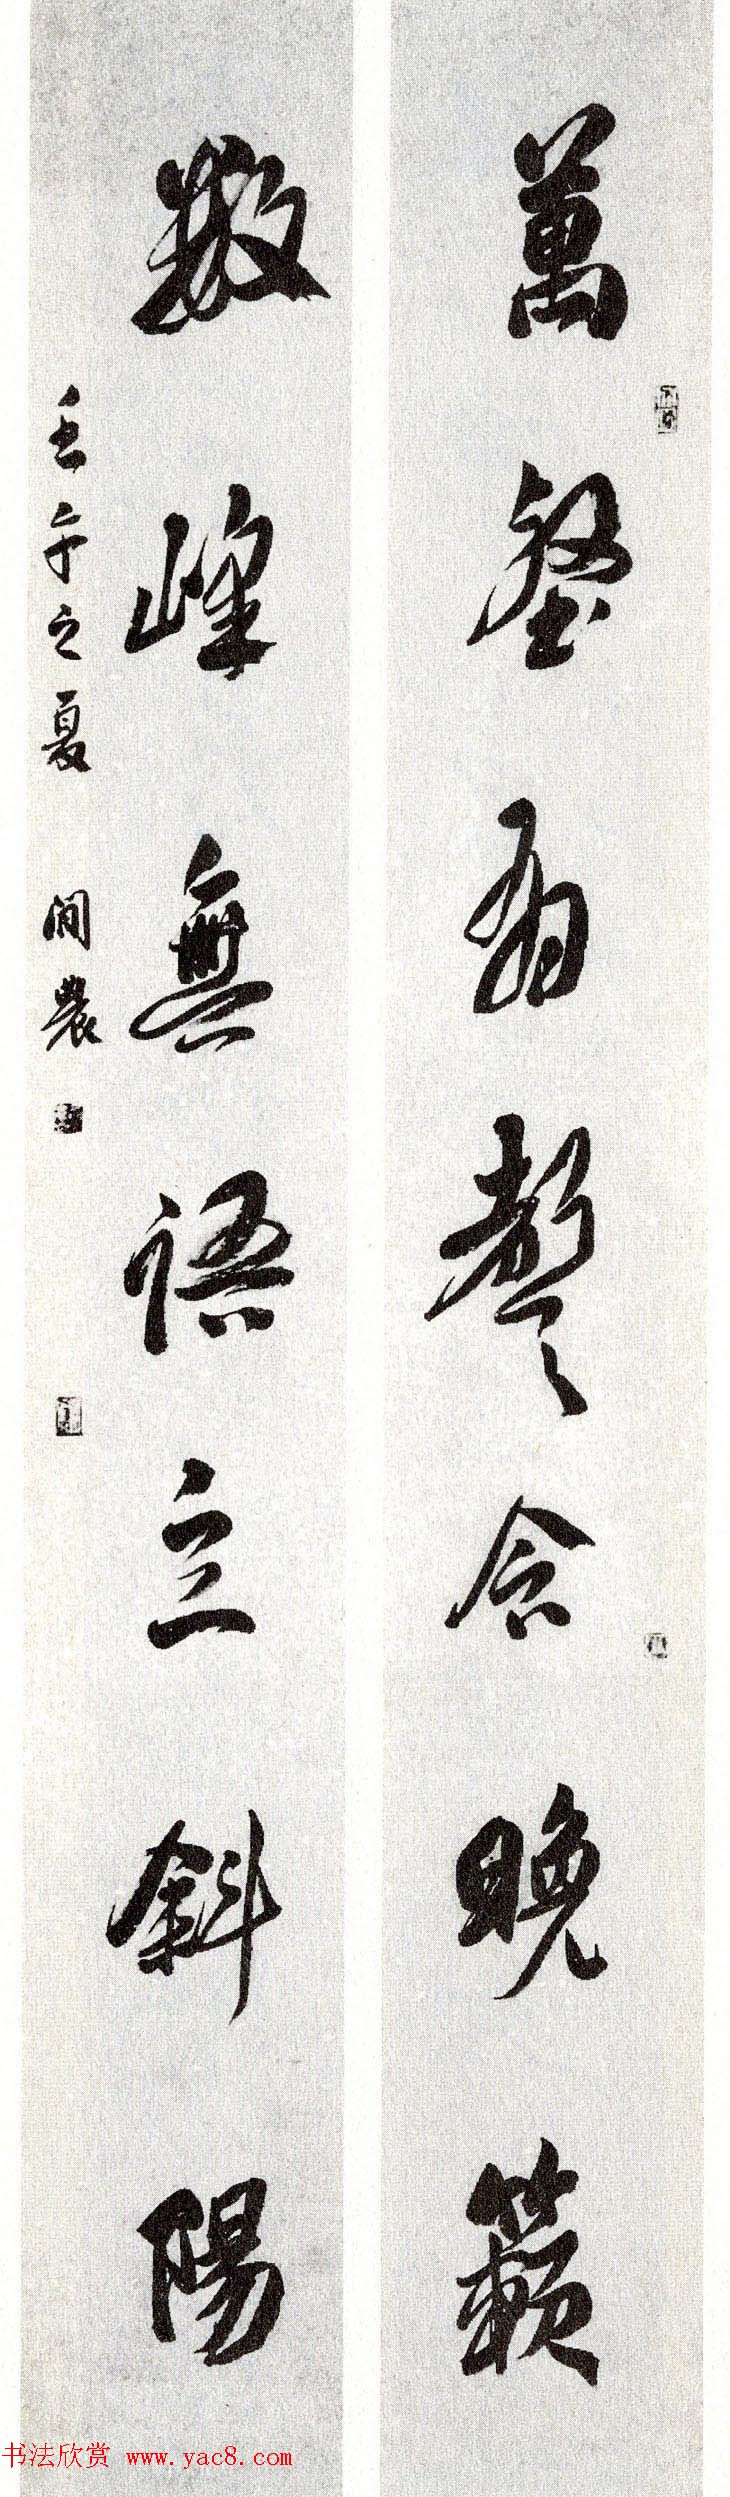 萬壑有聲含晚籟
數峰無語立斜陽
壬午之夏 閒農
书法欣赏 www.yac8.com